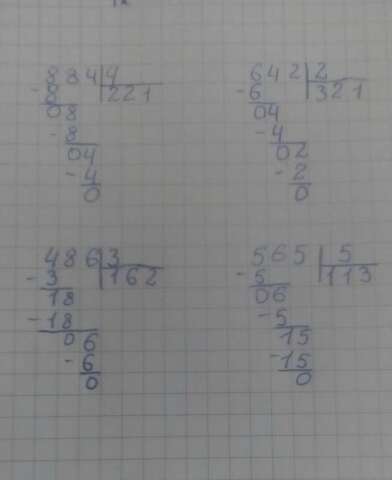 884 4
- 8 221
08
- 8
04
- 4
0
642 2
- 6 321
04
- 4
02
- 2
0
486 3
- 3 162
18
- 18
06
- 6
0
565 5
- 5 113
06
- 5
15
- 15
0